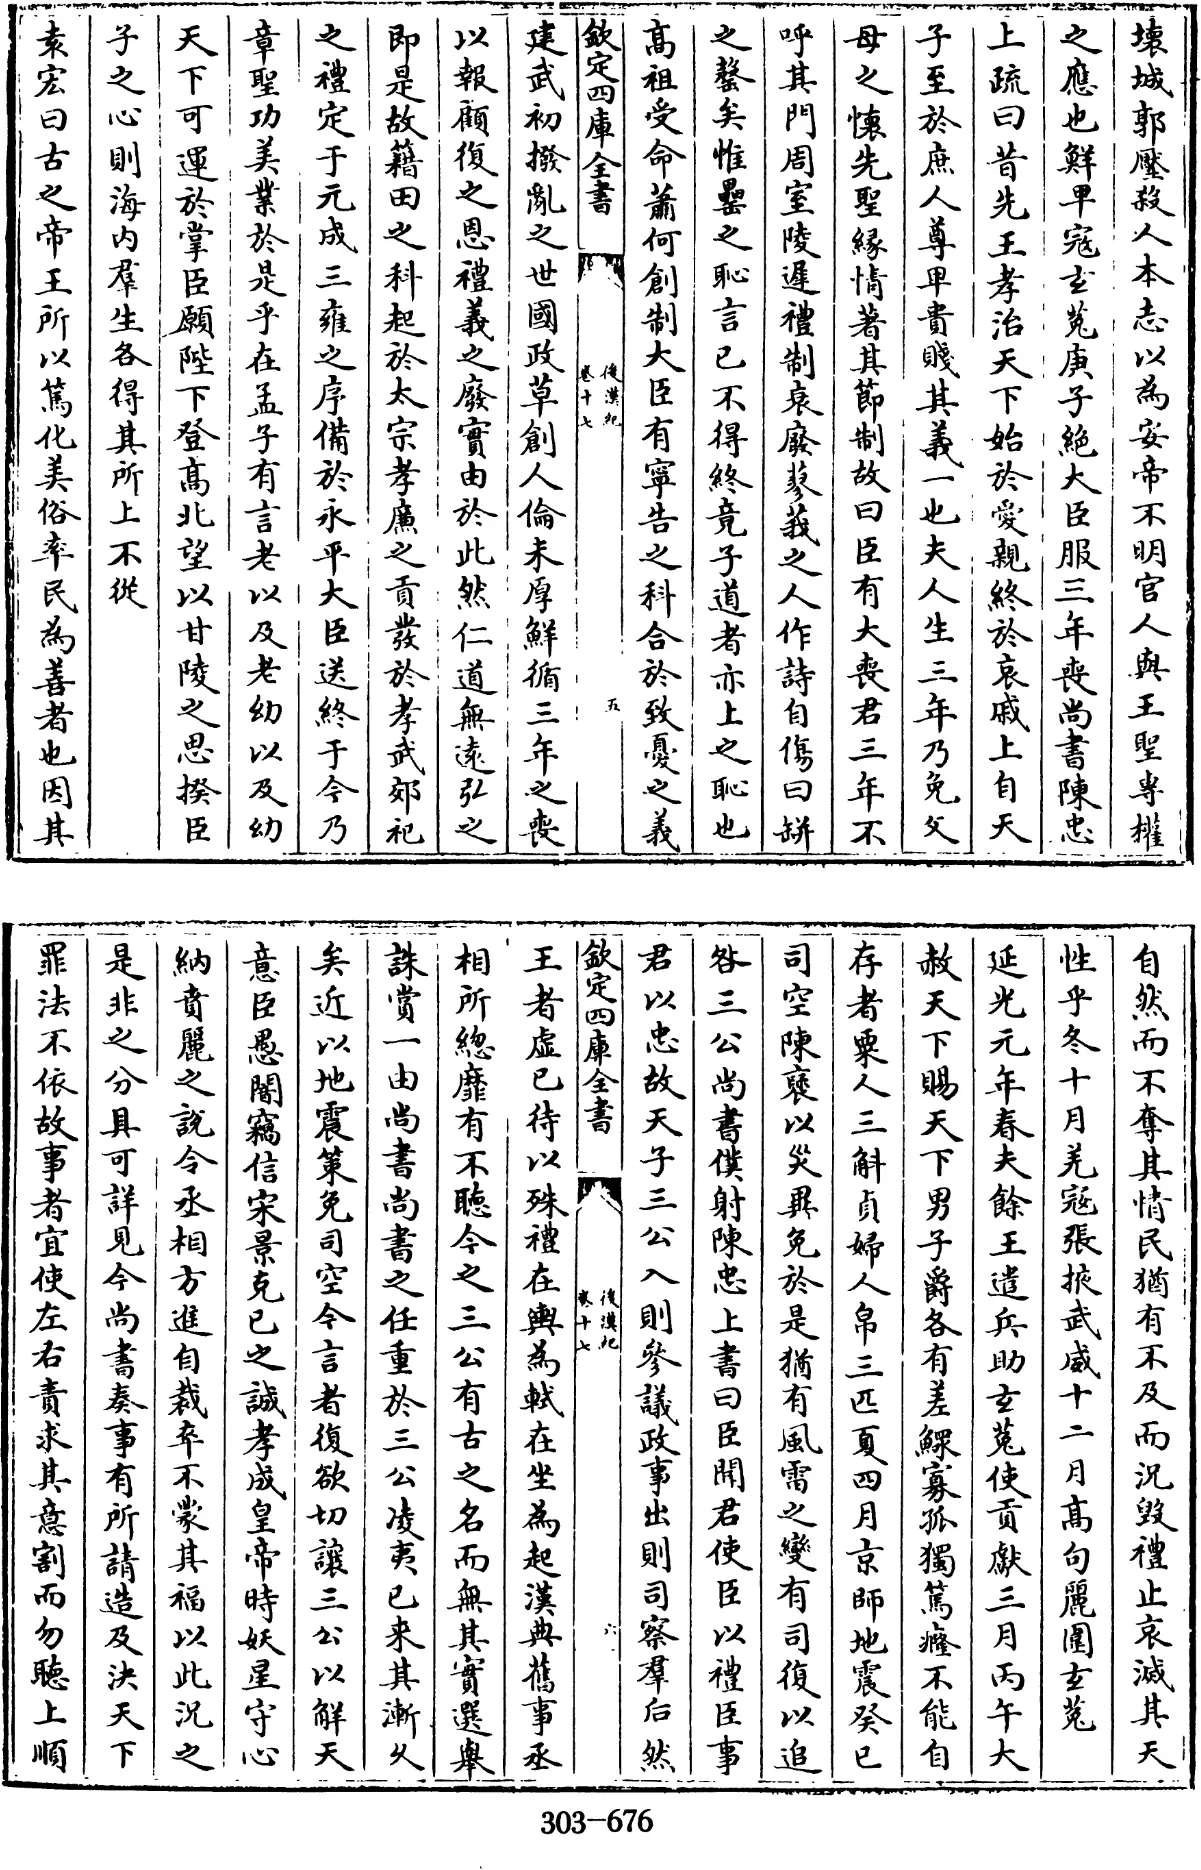 壞城郭壓殺人本志以為安帝不明官人與王聖専權
之應也鮮卑寇玄菟庚子絶大臣服三年喪尚書陳忠
上疏曰昔先王孝治天下始於愛親終於哀戚上自天
子至於庶人尊卑貴賤其義一也夫人生三年乃免父
母之懐先聖緣情著其節制故曰臣有大喪君三年不
呼其門周室陵遲禮制衰廢蓼莪之人作詩自傷曰缾
之罄矣惟罍之恥言已不得終竟子道者亦上之恥也
高祖受命蕭何創制大臣有寧告之科合於致憂之義
欽定四庫全書
後漢紀
卷十七
五
建武初撥亂之世國政草創人倫未厚鮮循三年之喪
以報顧復之恩禮義之廢實由於此然仁道無遠弘之
即是故籍田之科起於太宗孝廉之貢發於孝武郊祀
之禮定于元成三雍之序備於永平大臣送終于今乃
章聖功美業於是乎在孟子有言老以及老幼以及幼
天下可運於掌臣願陛下登高北望以甘陵之思揆臣
子之心則海内羣生各得其所上不從
袁宏曰古之帝王所以篤化美俗率民為善者也因其
自然而不奪其情民猶有不及而況毀禮止哀滅其天
性乎冬十月羌寇張掖武威十二月髙句麗圍玄菟
延光元年春夫餘王遣兵助玄菟使貢獻三月丙午大
赦天下賜天下男子爵各有差鰥寡孤獨篤癃不能自
存者粟人三斛貞婦人帛三匹夏四月京師地震癸已
司空陳襃以災異免於是猶有風雷之變有司復以追
咎三公尚書僕射陳忠上書曰臣聞君使臣以禮臣事
君以忠故天子三公入則參議政事出則司察羣后然
欽定四庫全書
後漢紀
卷十七
六
王者虚已待以殊禮在輿為軾在坐為起漢典舊事丞
相所總靡有不聽今之三公有古之名而無其實選舉
誅賞一由尚書尚書之任重於三公凌夷已来其漸乆
矣近以地震策免司空今言者復欲切讓三公以解天
意臣愚闇竊信宋景克已之誠孝成皇帝時妖星守心
納賁麗之說令丞相方進自裁卒不蒙其福以此況之
是非之分具可詳見今尚書奏事有所請造及決天下
罪法不依故事者宜使左右責求其意割而勿聽上順
303-676